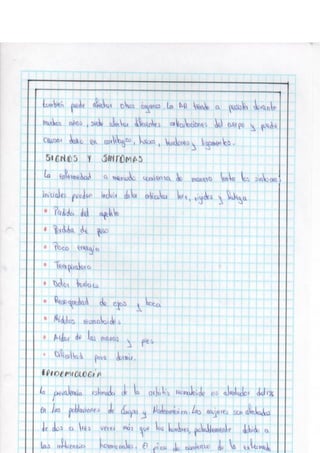 también puede afectar otros órganos La AR tiende a persistir durante
muchos años, suele afectar diferentes articulaciones del cuerpo y puede
causar daño en cartílago, huesos, tendones y ligamentos.
SIGNOS Y SINTOMAS
La enfermedad a menudo comienza de manera lenta los síntomas
iniciales pueden incluir dolor articular leve, rigidez y fatiga
Perdida del apetito
Perdida de peso
Poca energía
Temperatura
Dolor
Resequedad de ojos y boca
Nódulos reumatoides
Ardor de las manos y pies
Dificultad para dormir.
EPIDEMIOLOGIA
La prevalencia estimada de la artritis reumatoide es alrededor
en las poblaciones de Europa y Norteamérica. Las mujeres son afectadas
de dos a tres veces más que los hombres, probablemente debido a
las influencias hormonales. El pico de comienzo de la enfermedad